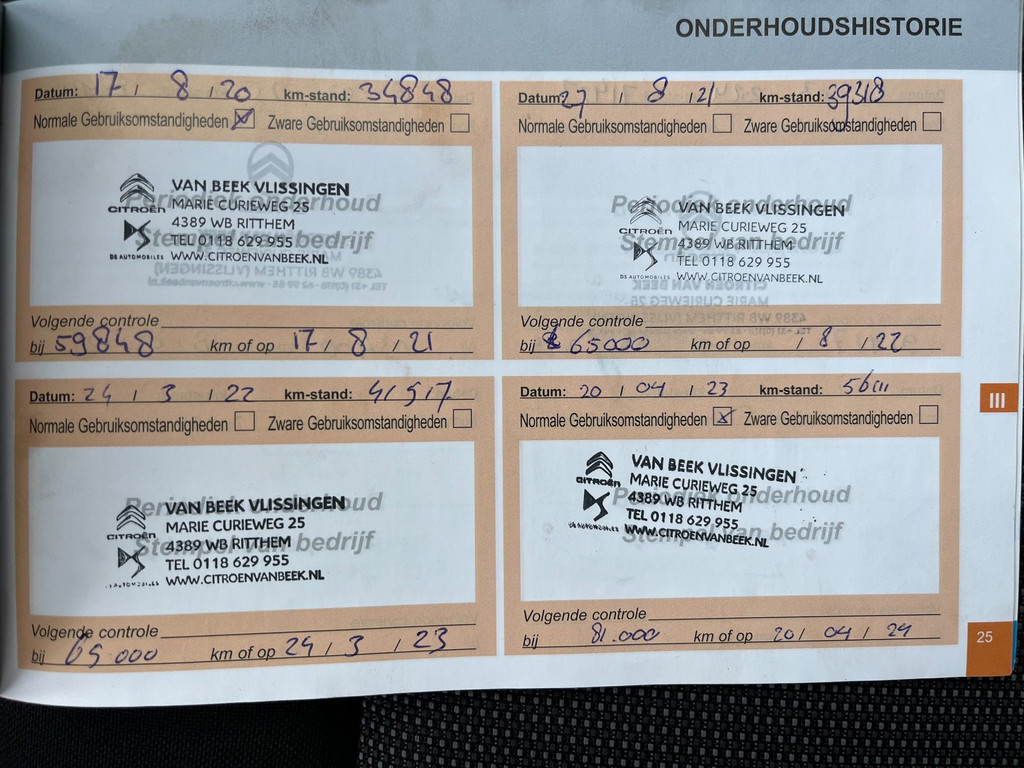 ONDERHOUDSHISTORIE
Datum: 17 / 8 / 20 km-stand: 34848
Normale Gebruiksomstandigheden Zware Gebruiksomstandigheden
Periodiek onderhoud
Stempel van bedrijf
CITROËN
DS AUTOMOBILES
VAN BEEK VLISSINGEN
MARIE CURIEWEG 25
4389 WB RITTHEM
TEL 0118 629 955
WWW.CITROENVANBEEK.NL
Volgende controle
bij 59848 km of op 17 / 8 / 21
Datum: 27 / 8 / 21 km-stand: 39318
Normale Gebruiksomstandigheden Zware Gebruiksomstandigheden
Periodiek onderhoud
Stempel van bedrijf
CITROËN
DS AUTOMOBILES
VAN BEEK VLISSINGEN
MARIE CURIEWEG 25
4389 WB RITTHEM
TEL 0118 629 955
WWW.CITROENVANBEEK.NL
Volgende controle
bij 65000 km of op / 8 / 22
Datum: 24 / 3 / 22 km-stand: 41517
Normale Gebruiksomstandigheden Zware Gebruiksomstandigheden
Periodiek onderhoud
Stempel van bedrijf
CITROËN
DS AUTOMOBILES
VAN BEEK VLISSINGEN
MARIE CURIEWEG 25
4389 WB RITTHEM
TEL 0118 629 955
WWW.CITROENVANBEEK.NL
Volgende controle
bij 65000 km of op 24 / 3 / 23
Datum: 20 / 04 / 23 km-stand: 56111
Normale Gebruiksomstandigheden Zware Gebruiksomstandigheden
Periodiek onderhoud
Stempel van bedrijf
CITROËN
DS AUTOMOBILES
VAN BEEK VLISSINGEN
MARIE CURIEWEG 25
4389 WB RITTHEM
TEL 0118 629 955
WWW.CITROENVANBEEK.NL
Volgende controle
bij 81.000 km of op 20 / 04 / 24
III
25